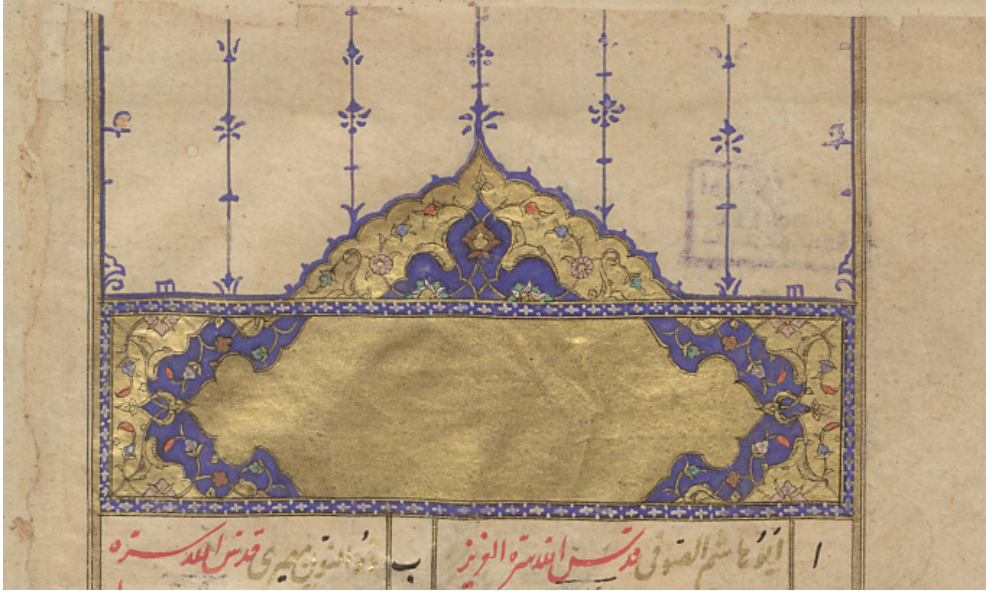 ا ابوهاشم الصوفی قدس الله سره العزیز ب ذوالنون مصری قدس الله سره